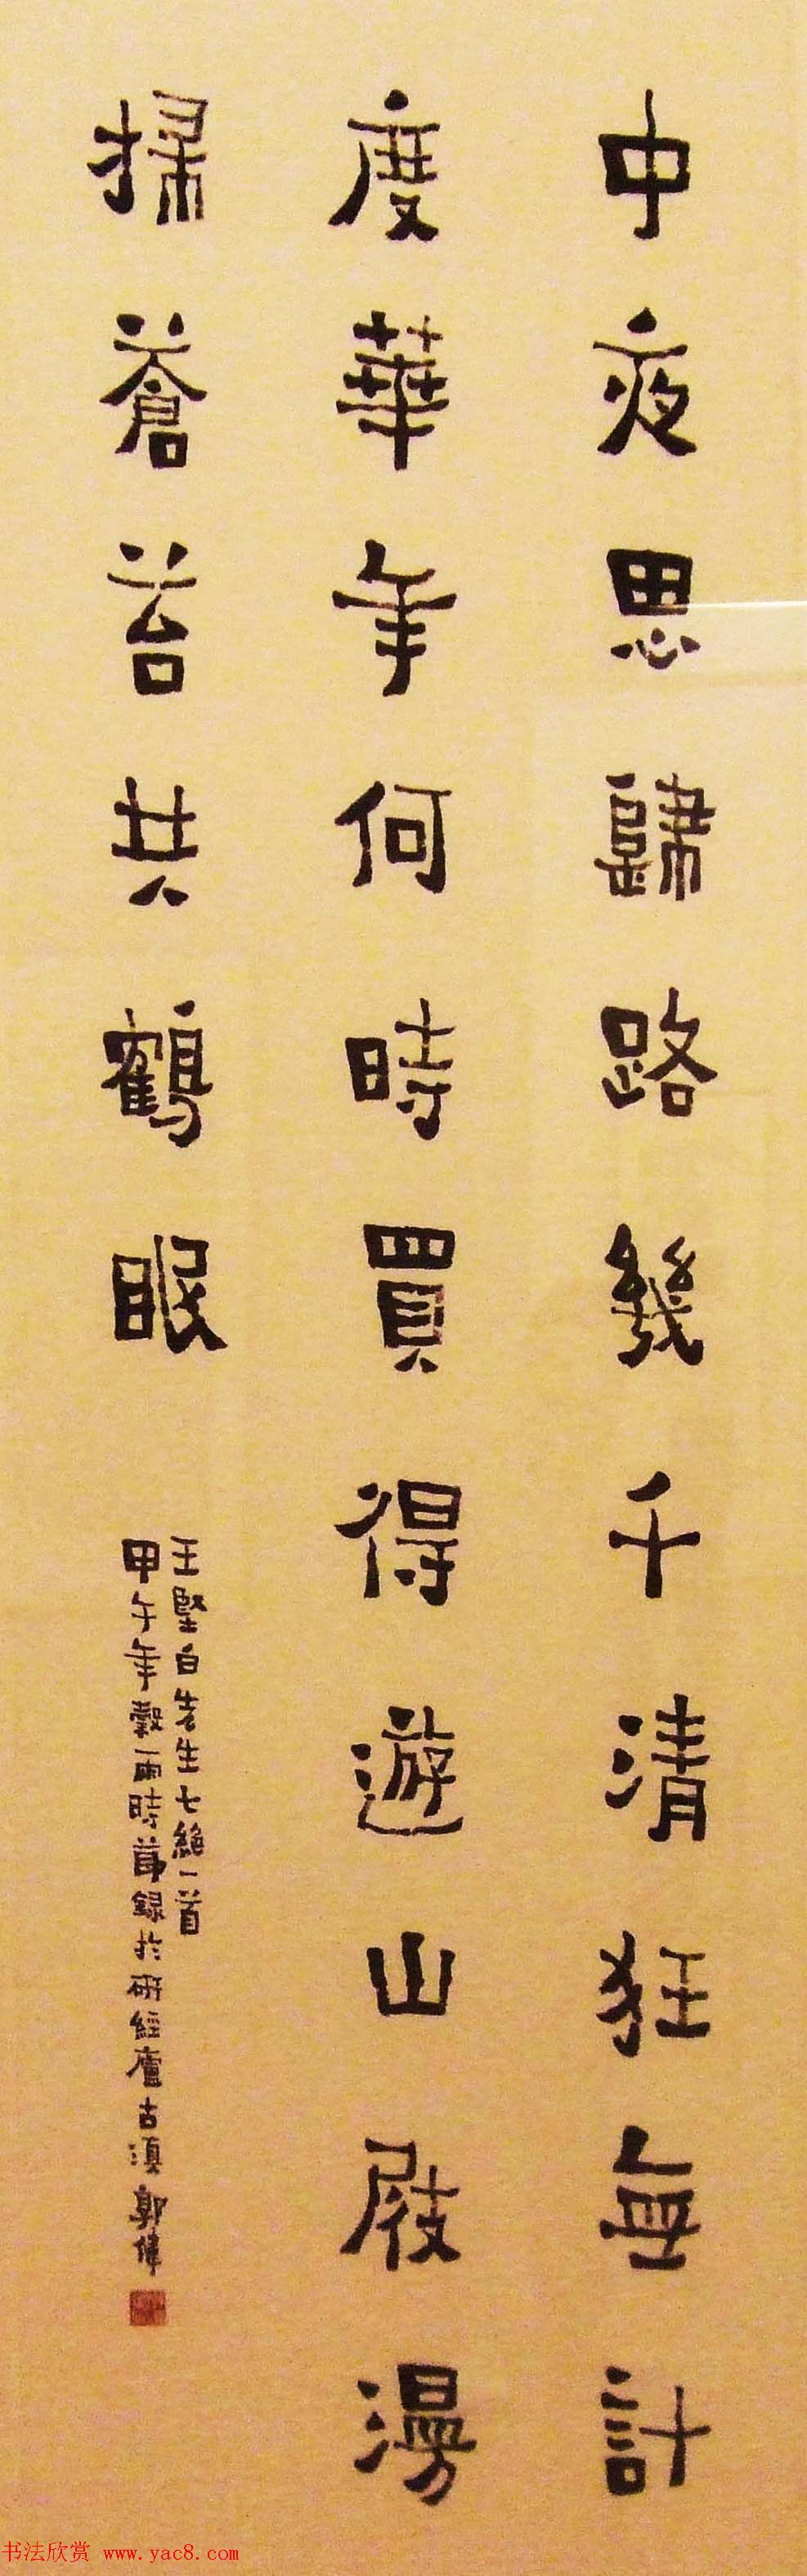 中夜思歸路幾千清狂無計
度華年何時買得遊山屐漫
掃蒼苔共鶴眠
王堅白先生七絕一首
甲午年穀雨時節錄於研經廬古滇郭偉
书法欣赏 www.yac8.com